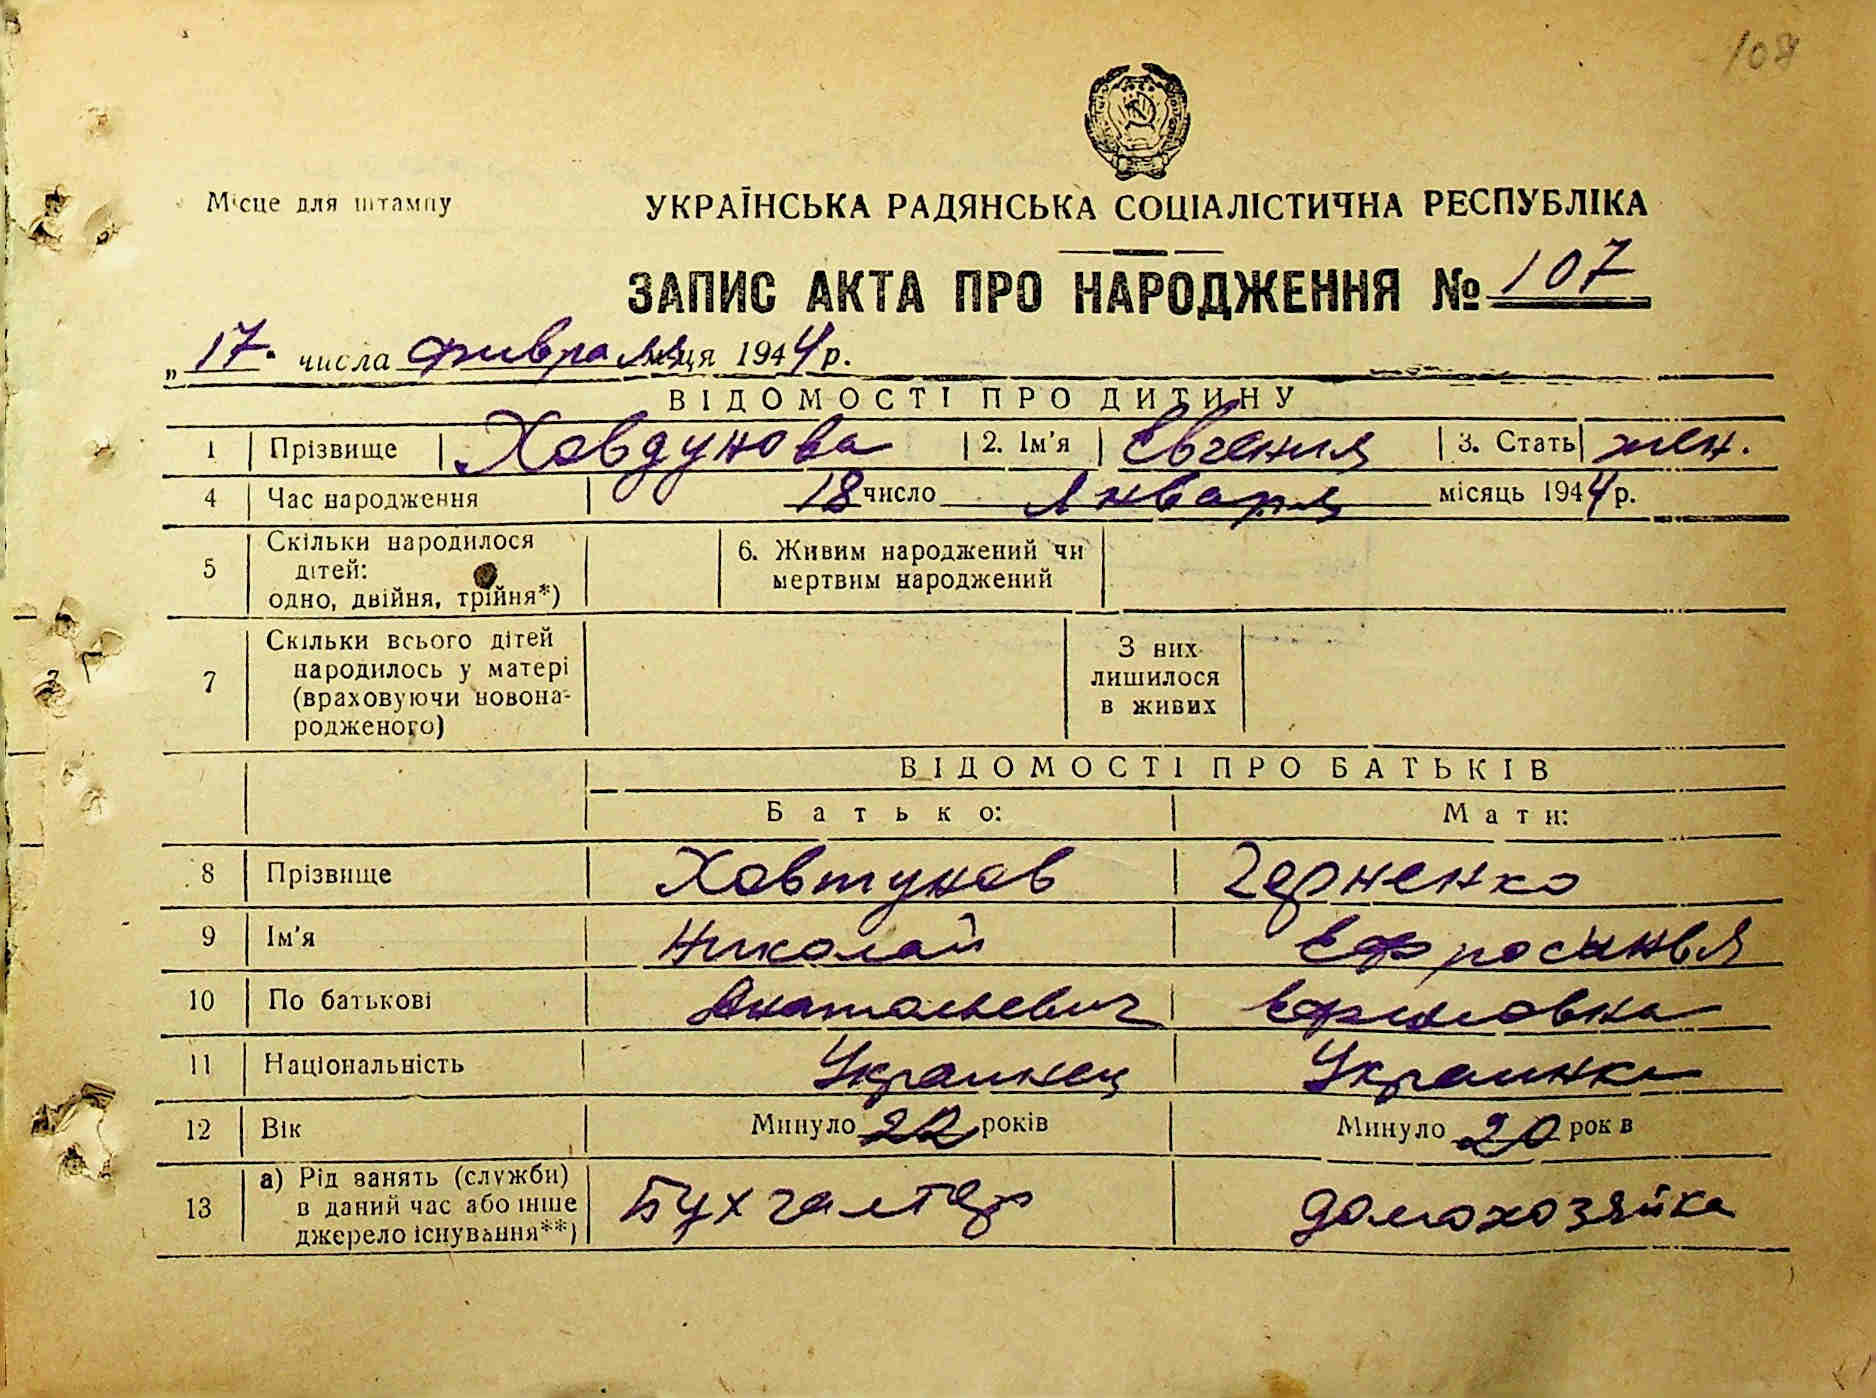 108
Місце для штампу
УКРАЇНСЬКА РАДЯНСЬКА СОЦІАЛІСТИЧНА РЕСПУБЛІКА
ЗАПИС АКТА ПРО НАРОДЖЕННЯ № 107
„ 17 " числа февраля м-ця 1944 р.
ВІДОМОСТІ ПРО ДИТИНУ
1 Прізвище Ховдунова 2. Ім'я Евгения 3. Стать жен.
4 Час народження 18 число Января місяць 1944 р.
5 Скільки народилося дітей: одно, двійня, трійня*) 6. Живим народжений чи мертвим народжений
7 Скільки всього дітей народилось у матері (враховуючи новонародженого) З них лишилося в живих
ВІДОМОСТІ ПРО БАТЬКІВ
Батько: Мати:
8 Прізвище Ховтунов Черненко
9 Ім'я Николай Ефросинья
10 По батькові Анатольевич Ефимовна
11 Національність Украинец Украинка
12 Вік Минуло 22 років Минуло 20 років
13 а) Рід занять (служби) в даний час або інше джерело існування**) Бухгалтер домохозяйка